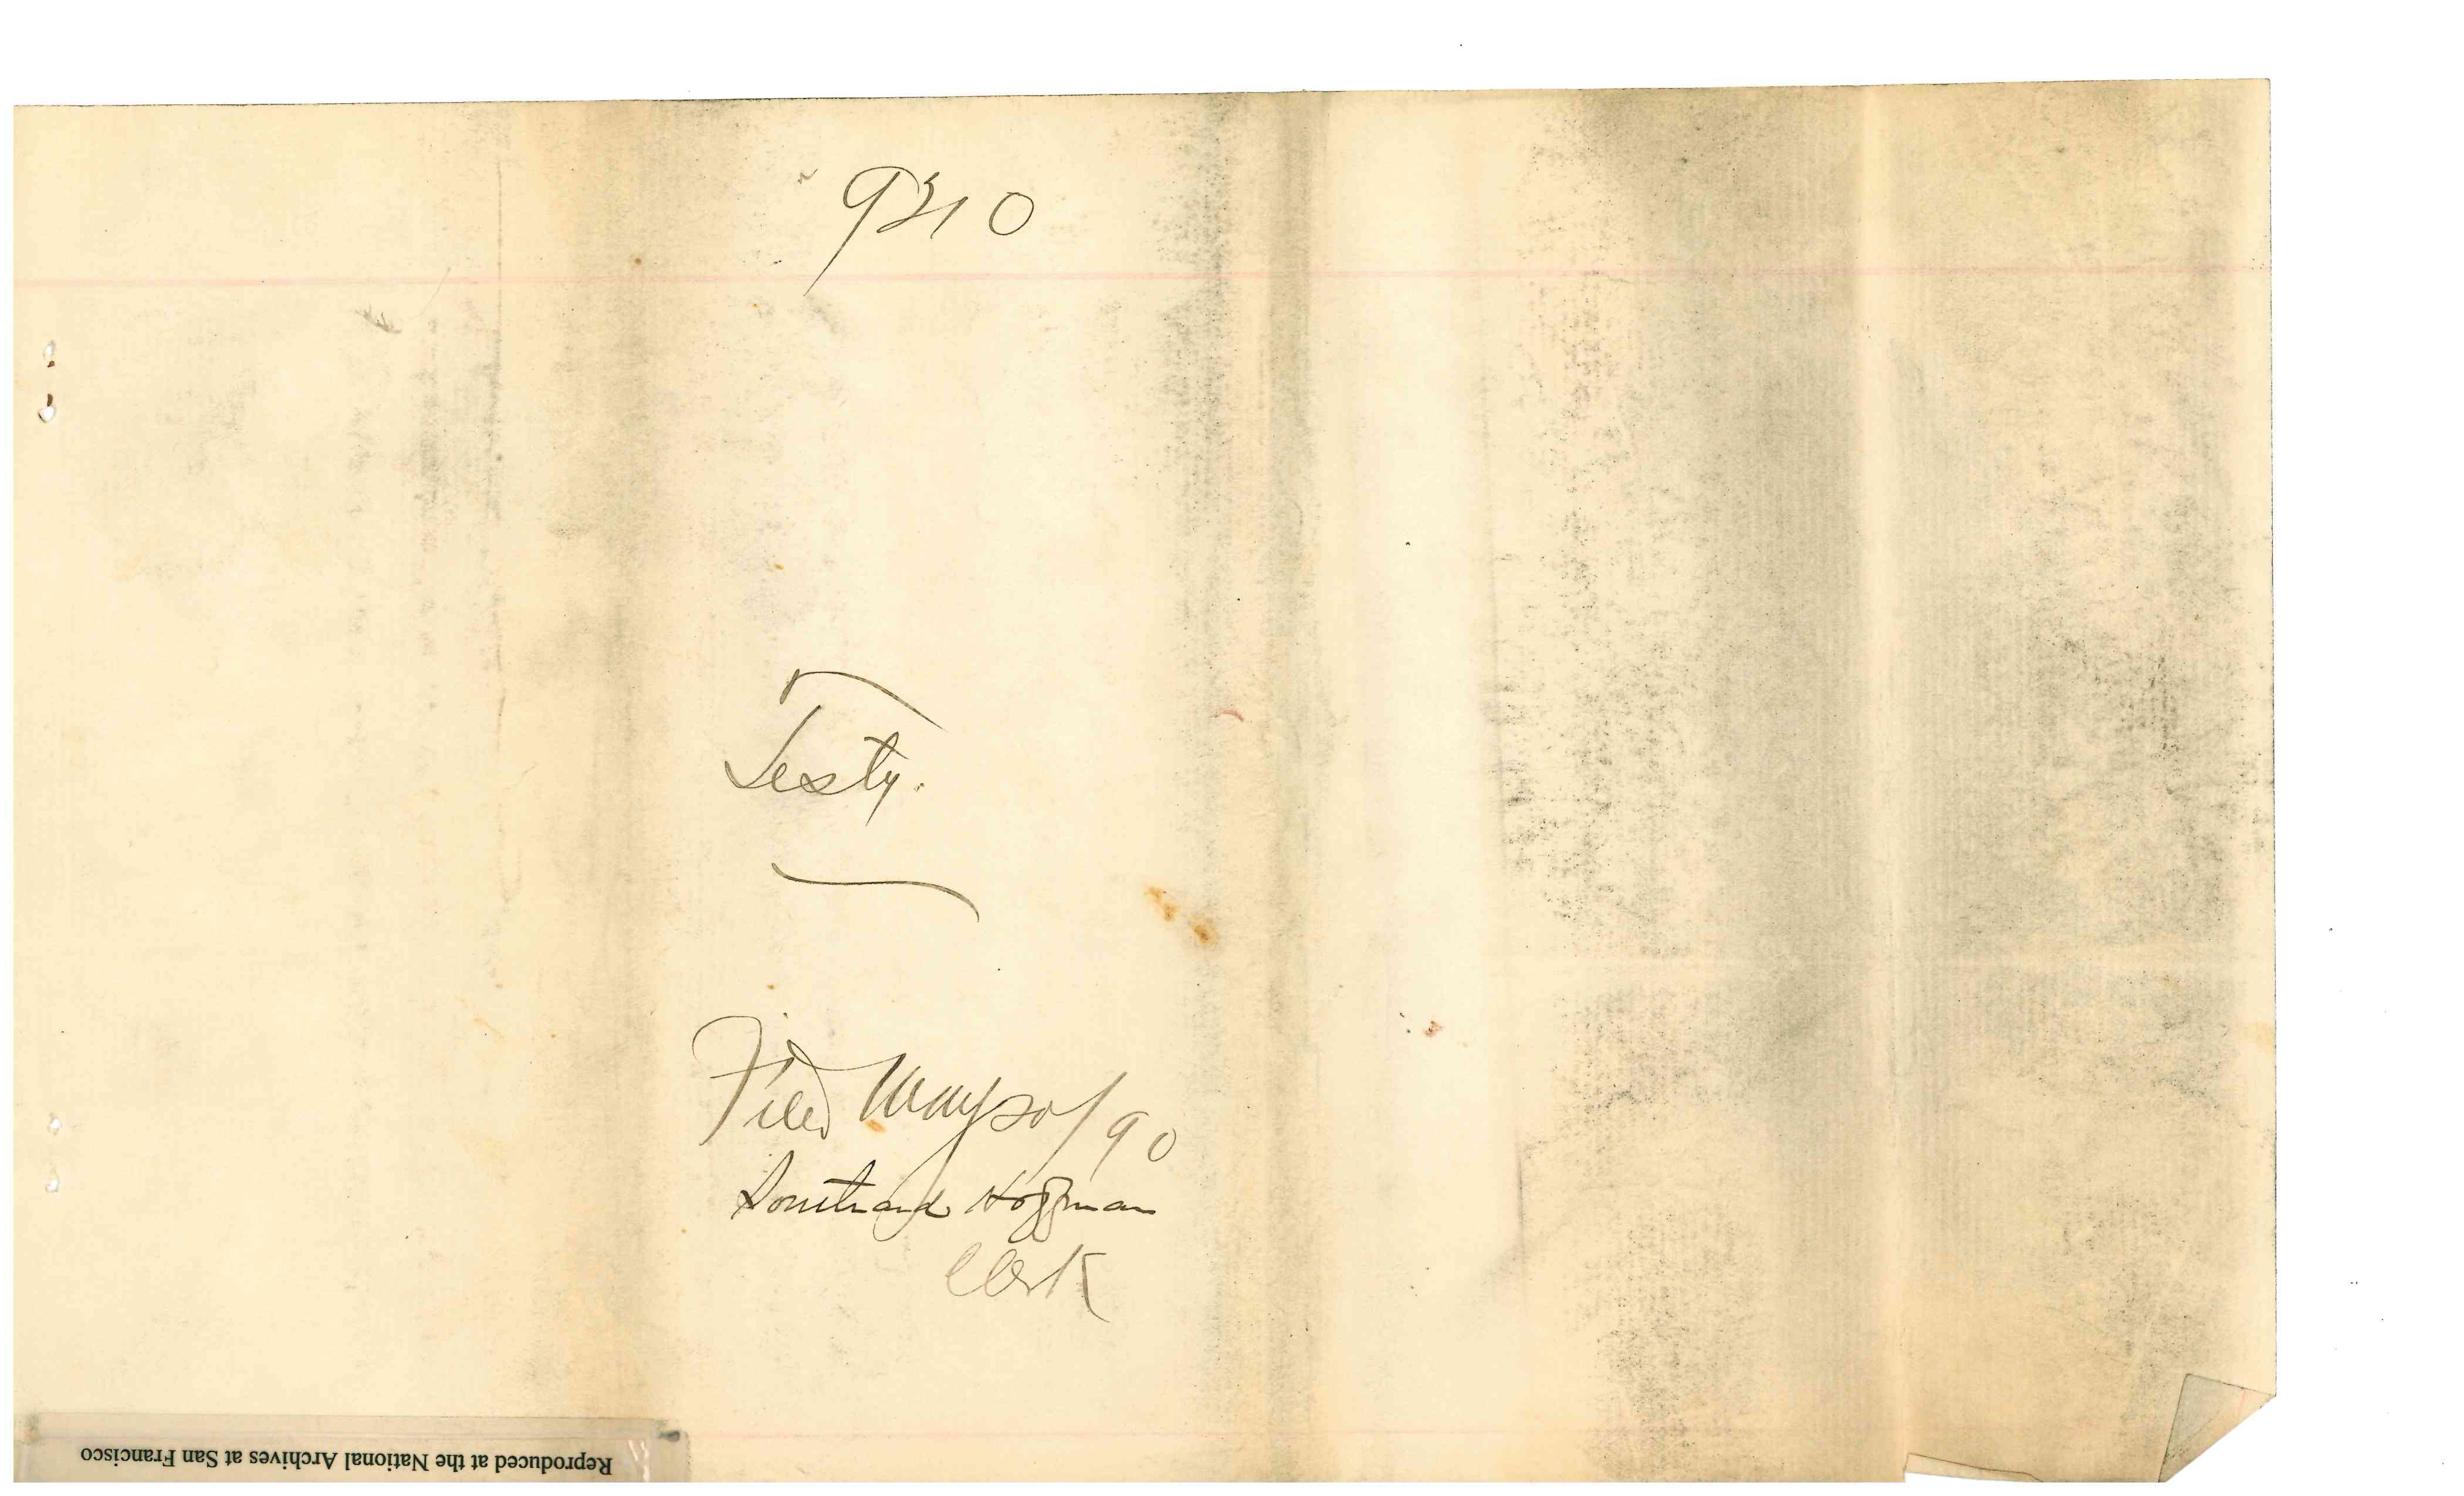 9310
Testy.
Filed May 20/90
Southard Hoffman
Clerk
Reproduced at the National Archives at San Francisco